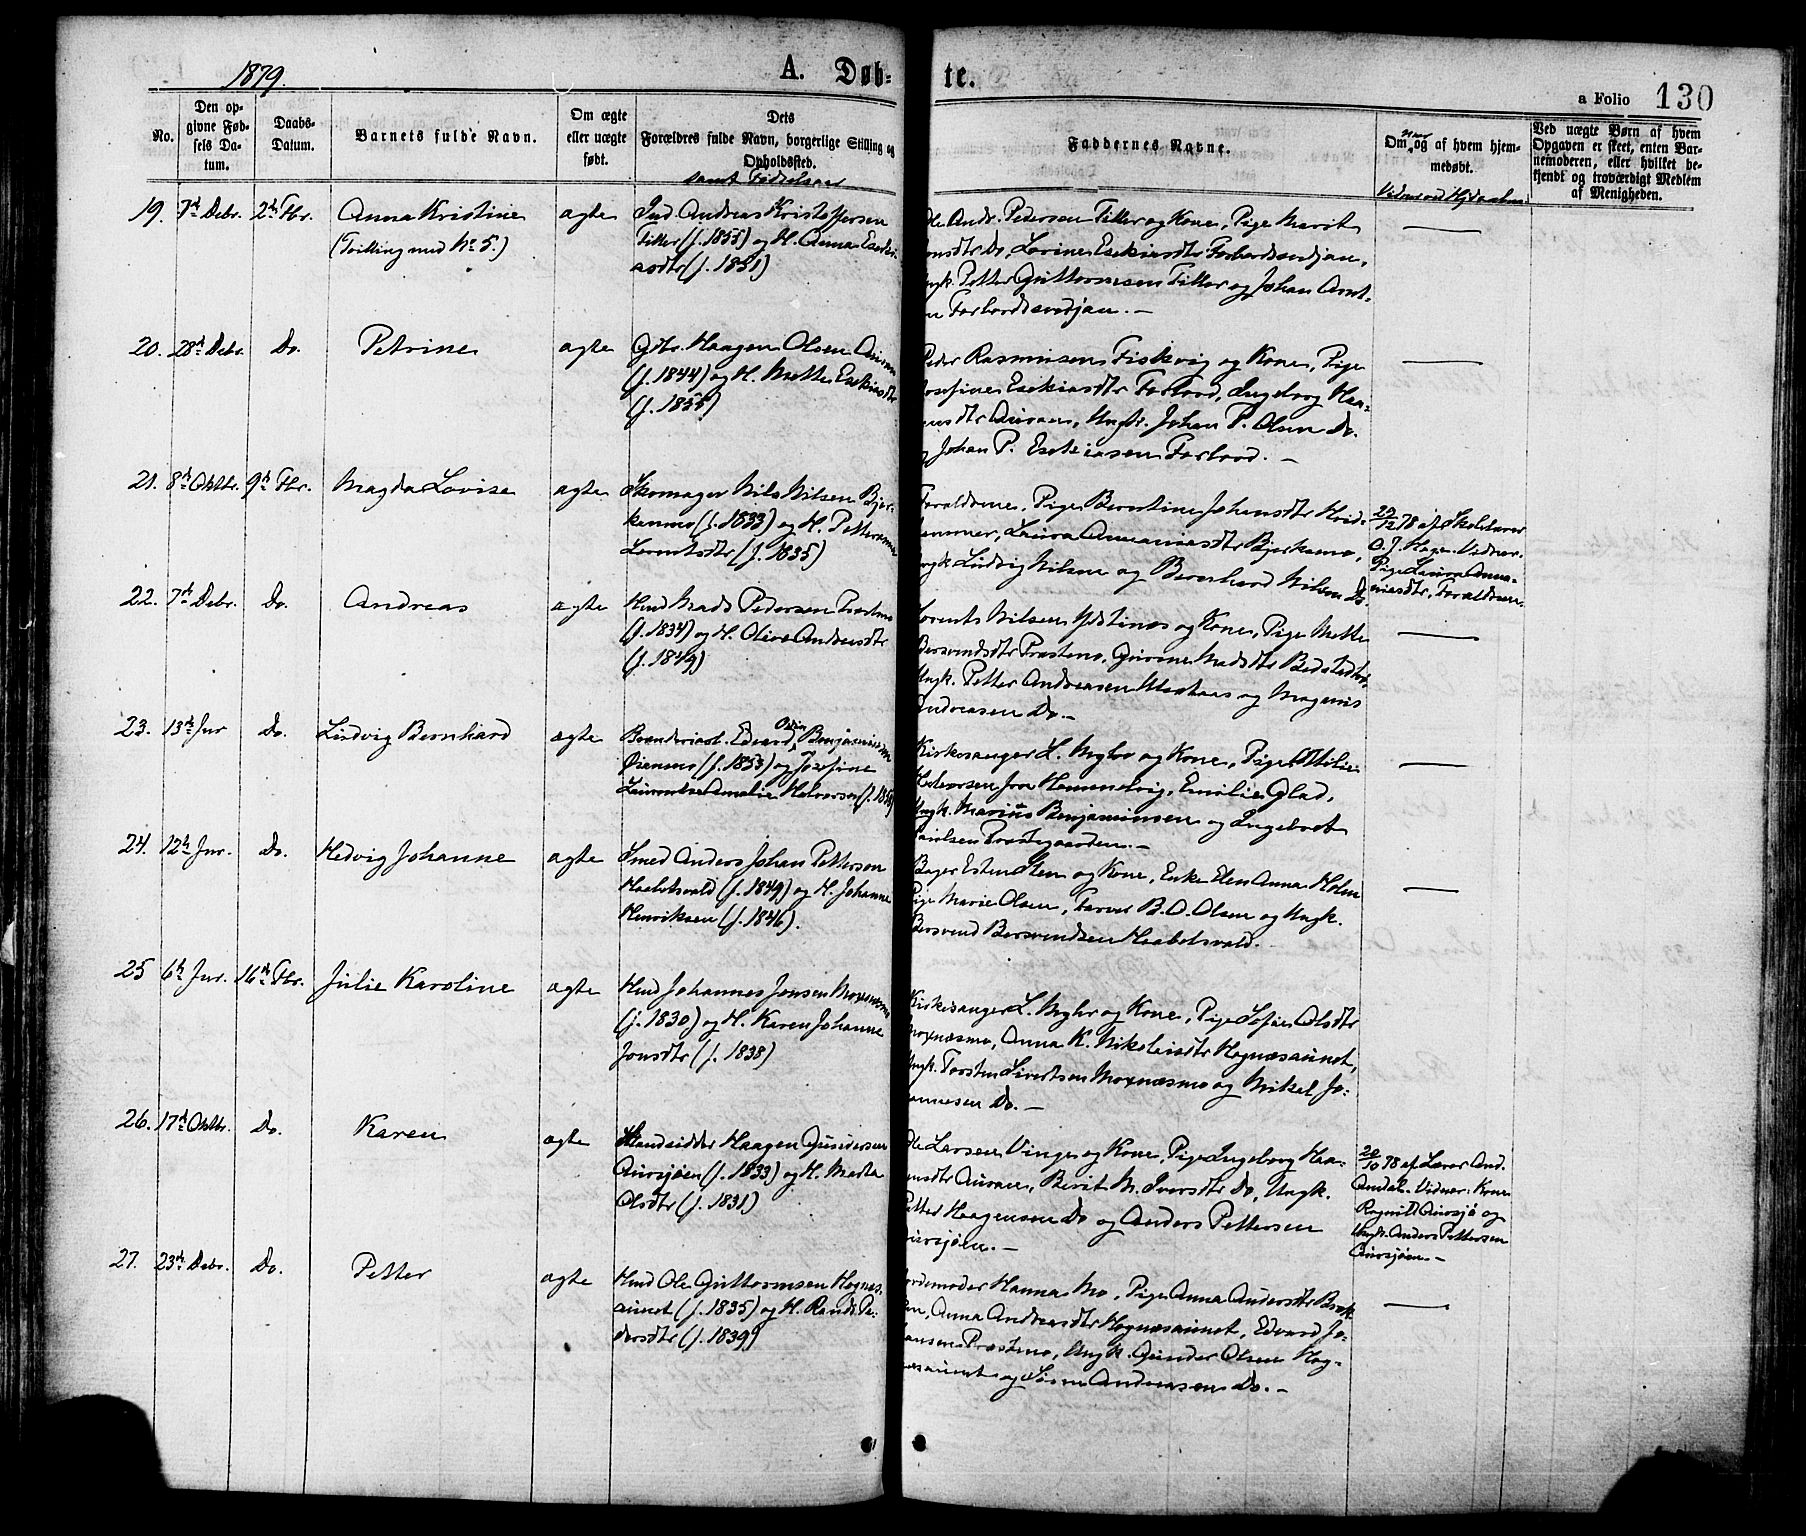 1879.
A. Døb-
te.
a Folio 130
No.
Den op-
givne Fød-
sels Da-
tum.
Daabs-
Datum.
Barnets fulde Navn.
Om ægte
eller uægte
født.
Dets
Forældres fulde Navn, borgerlige Stilling og
Opholdssted.
samt Fødselsaar
Faddernes Navne.
Om, naar og af hvem hjem-
medøbt.
Ved uægte Børn af hvem
Opgaven er skeet, enten Bar-
nemoderen, eller hvilket be-
kjendt og troværdigt Medlem
af Menigheden.
19. 7de Debr. 2den Fbr. Anna Kristine
(Tvilling med No 5.)
ægte
Ind. Andreas Kristoffersen
Tiller (f. 1855) og H. Anna Esekias-
asdtr (f. 1851)
Andr. Pedersen Tiller og Kone, Pige Marit
Do, Lovine Esekiasdtr Forbordsvedjan,
Petter Guttormsen Tiller og Johan Arnt-
Forbordsvedjan. —
20. 28de Debr. Do. Petrine ægte
Gbr. Haagen Olsen Auran
(f. 1844) og H. Mette Esekiasdtr
(f. 1855)
Peder Rasmussen Fiskvig og Kone, Pige
Josefine Esekiasdtr Forbord, Ingeborg Haa-
Auran, Ungk. Johan P. Olsen Do.
Johan P. Esekiasen Forbord. —
21. 8de Oktbr. 9de Fbr. Magda Lovise ægte
Skomager Nils Nilsen Bjer-
kenmo (f. 1833) og H. Petternanna
Lorentsdtr (f. 1835)
Forældrene, Pige Berntine Johansdtr Hvid-
hammer, Laura Annaniasdtr Bjerkenmo,
Ungk Ludvig Nilsen og Bernhard Nilsen Do.
29/12 78 af Skolelærer
O. J. Hagen. Vidner:
Pige Laura Anna-
niasdtr, Forældrene.
22. 7de Debr. Do. Andreas ægte
Hmd Mads Pedersen Præstmo
(f. 1834) og H. Olive Andreasdtr
(f. 1849)
Lorents Nilsen Ystines og Kone, Pige Mette
Bersvendsdtr Præstmo, Gurine Madsdtr
Ungk. Petter Andreasen og Magnus
Andreasen Do. —
23. 13de Jnr Do. Ludvig Bernhard ægte
Edvard Odin Benjaminsen
Øienmo (f. 1853) og Josefine
Laurentze Amalie Halvorsen
Kirkesanger L. Myhr og Kone, Pige Otilie
Halvorsen fra Hommelvig, Emilie Glad,
Ungk. Marius Benjaminsen og Ingebret
Danielsen Præstegaarden. —
24. 12te Jnr. Do. Hedvig Johanne ægte
Smed Anders Johan Pettersen
Haabetsvald (f. 1849) og H. Johanne
Henriksen (f. 1846).
Bager Esten Sten og Kone, Enke Elen Anna Holm
Pige Marie Olsen, Farver B. O. Olsen og Ungk.
Bersvend Bersvendsen Haabetsvald. —
25 6te Jnr. 16de Fbr. Julie Karoline ægte
Hmd Johannes Jonsen Moxnesmo
(f. 1830) og H. Karen Johanna
Jonsdtr (f. 1838)
Kirkesanger L. Myhr og Kone, Pige Sofie Olsdtr
Moxnæsmo, Anna K. Nikolaisdtr Hognæsaunet,
Ungk. Torsten Sivertsen Moxnæsmo og Mikal Jo-
hannesen Do. —
26. 17de Oktbr. Do. Karen ægte
Strandsidder Haagen Gundersen
Aursjøen (f. 1833) og H. Marta
Olsdtr (f. 1831)
Ole Larsen Vinge og Kone, Pige Ingeborg Haa-
gensdtr Auran, Berit M. Iversdtr Do, Ungk.
Petter Haagensen Do og Anders Pettersen
Aursjøen. —
20/10 78 af Lærer And.
Amdal. Vidner: Kone
Ragnild Aursjø og
Ungk. Anders Pettersen
Aursjøen. —
27. 23de Debr. Do. Petter ægte
Hmd Ole Guttormsen Hognes-
aunet (f. 1835) og H. Randi Pe-
dersdtr (f. 1839)
Jordemoder Hanna Mo, Pige Anna Andersdtr
Anna Andreasdtr Hognæsaunet, Edvard Jo-
hansen Præstmo, Ungk. Gunder Olsen Hog-
næsaunet og Sören Andreasen Do. —